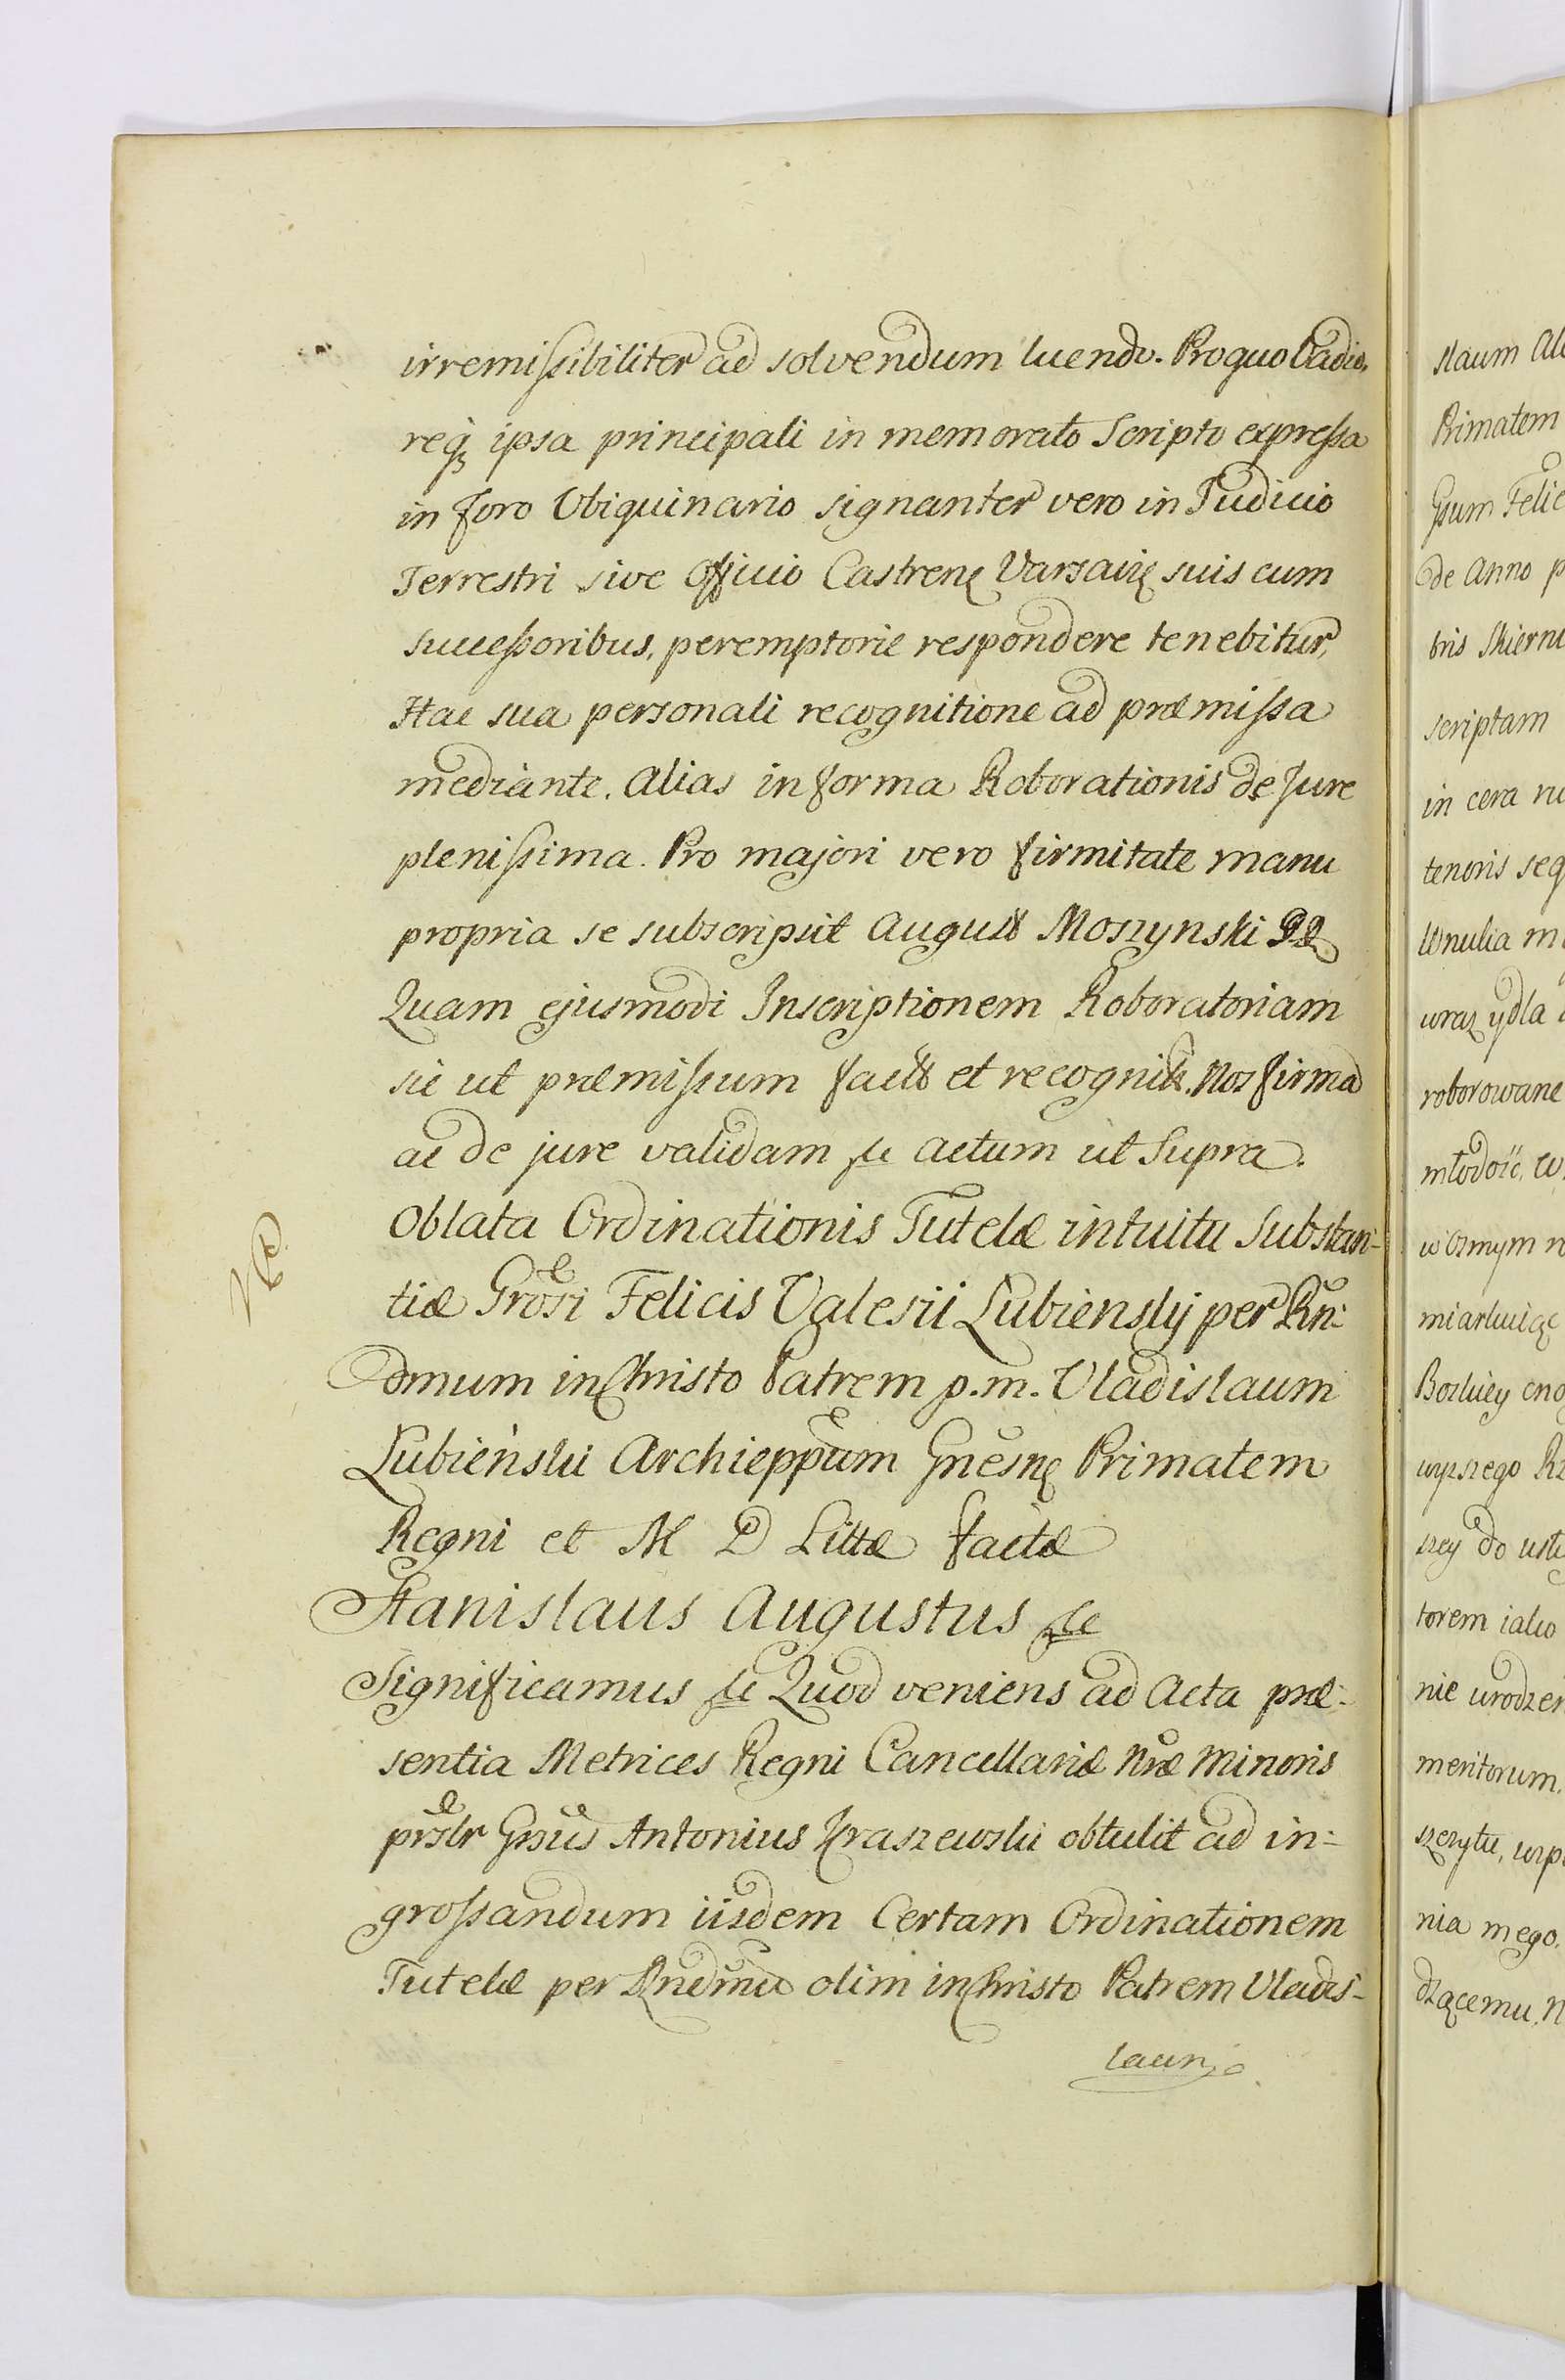 irremissibiliter ad solvendum luendo. Pro quo Vadio,
reqꝫ ipsa principali in memorato Scripto expressa
in foro Ubiquinario signanter vero in Judicio
Terrestri sive Officio Castrenę Varsavię suis cum
successoribus, peremptorie respondere tenebitur,
Hac sua personali recognitione ad præmissa
mediante. Alias in forma Roborationis de Jure
plenissima. Pro majori vero firmitate manu
propria se subscripsit August Moszynski
Quam ejusmodi Inscriptionem Roboratoriam
sic ut præmissum factã et recognitã. Nos firmã
ac de jure validam &c Actum ut Supra.
Oblata Ordinationis Tutelæ intuitu Substan-
tiæ Grosi Felicis Valesii Łubiensky per Rn:
dmum in Christo Patrem p.m. Vladislaum
Łubieński Archieppum Gnesnę Primatem
Regni et M D Littæ factæ
Stanislaus Augustus &c
Significamus &c Quod veniens ad Acta præ-
sentia Metrices Regni Cancellariæ Nræ Minoris
prslr Gnsus Antonius Kraszewski obtulit ad in-
grossandum iisdem Certam Ordinationem
Tutelæ per Rndmũ olim in Christo Patrem Vladis-
laum
slaum
Primatem
Gsum
de Anno
bris
scriptam
in cera
tenoris
wraz y dla
roborowane
młodość, w
w osmym
Boskiey
wyzszego
szey do
torem iako
nie
meritorum.
nia mego.
dzącemu.